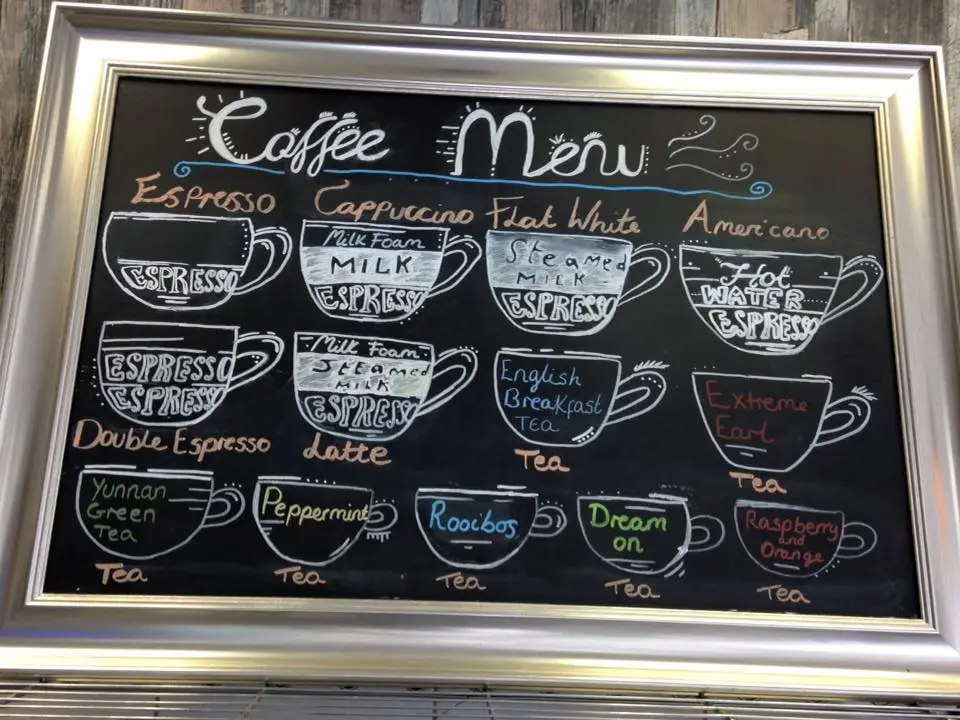 Coffee Menu
Espresso
ESPRESSO
Cappuccino
Milk Foam
MILK
ESPRESSO
Flat White
Steamed
MILK
ESPRESSO
Americano
Hot
WATER
ESPRESSO
ESPRESSO
ESPRESSO
Double Espresso
Milk Foam
Steamed
MILK
ESPRESSO
Latte
English
Breakfast
TEA
Tea
Extreme
Earl
Tea
Yunnan
Green
Tea
Tea
Peppermint
Tea
Rooibos
Tea
Dream
on
Tea
Raspberry
and
Orange
Tea